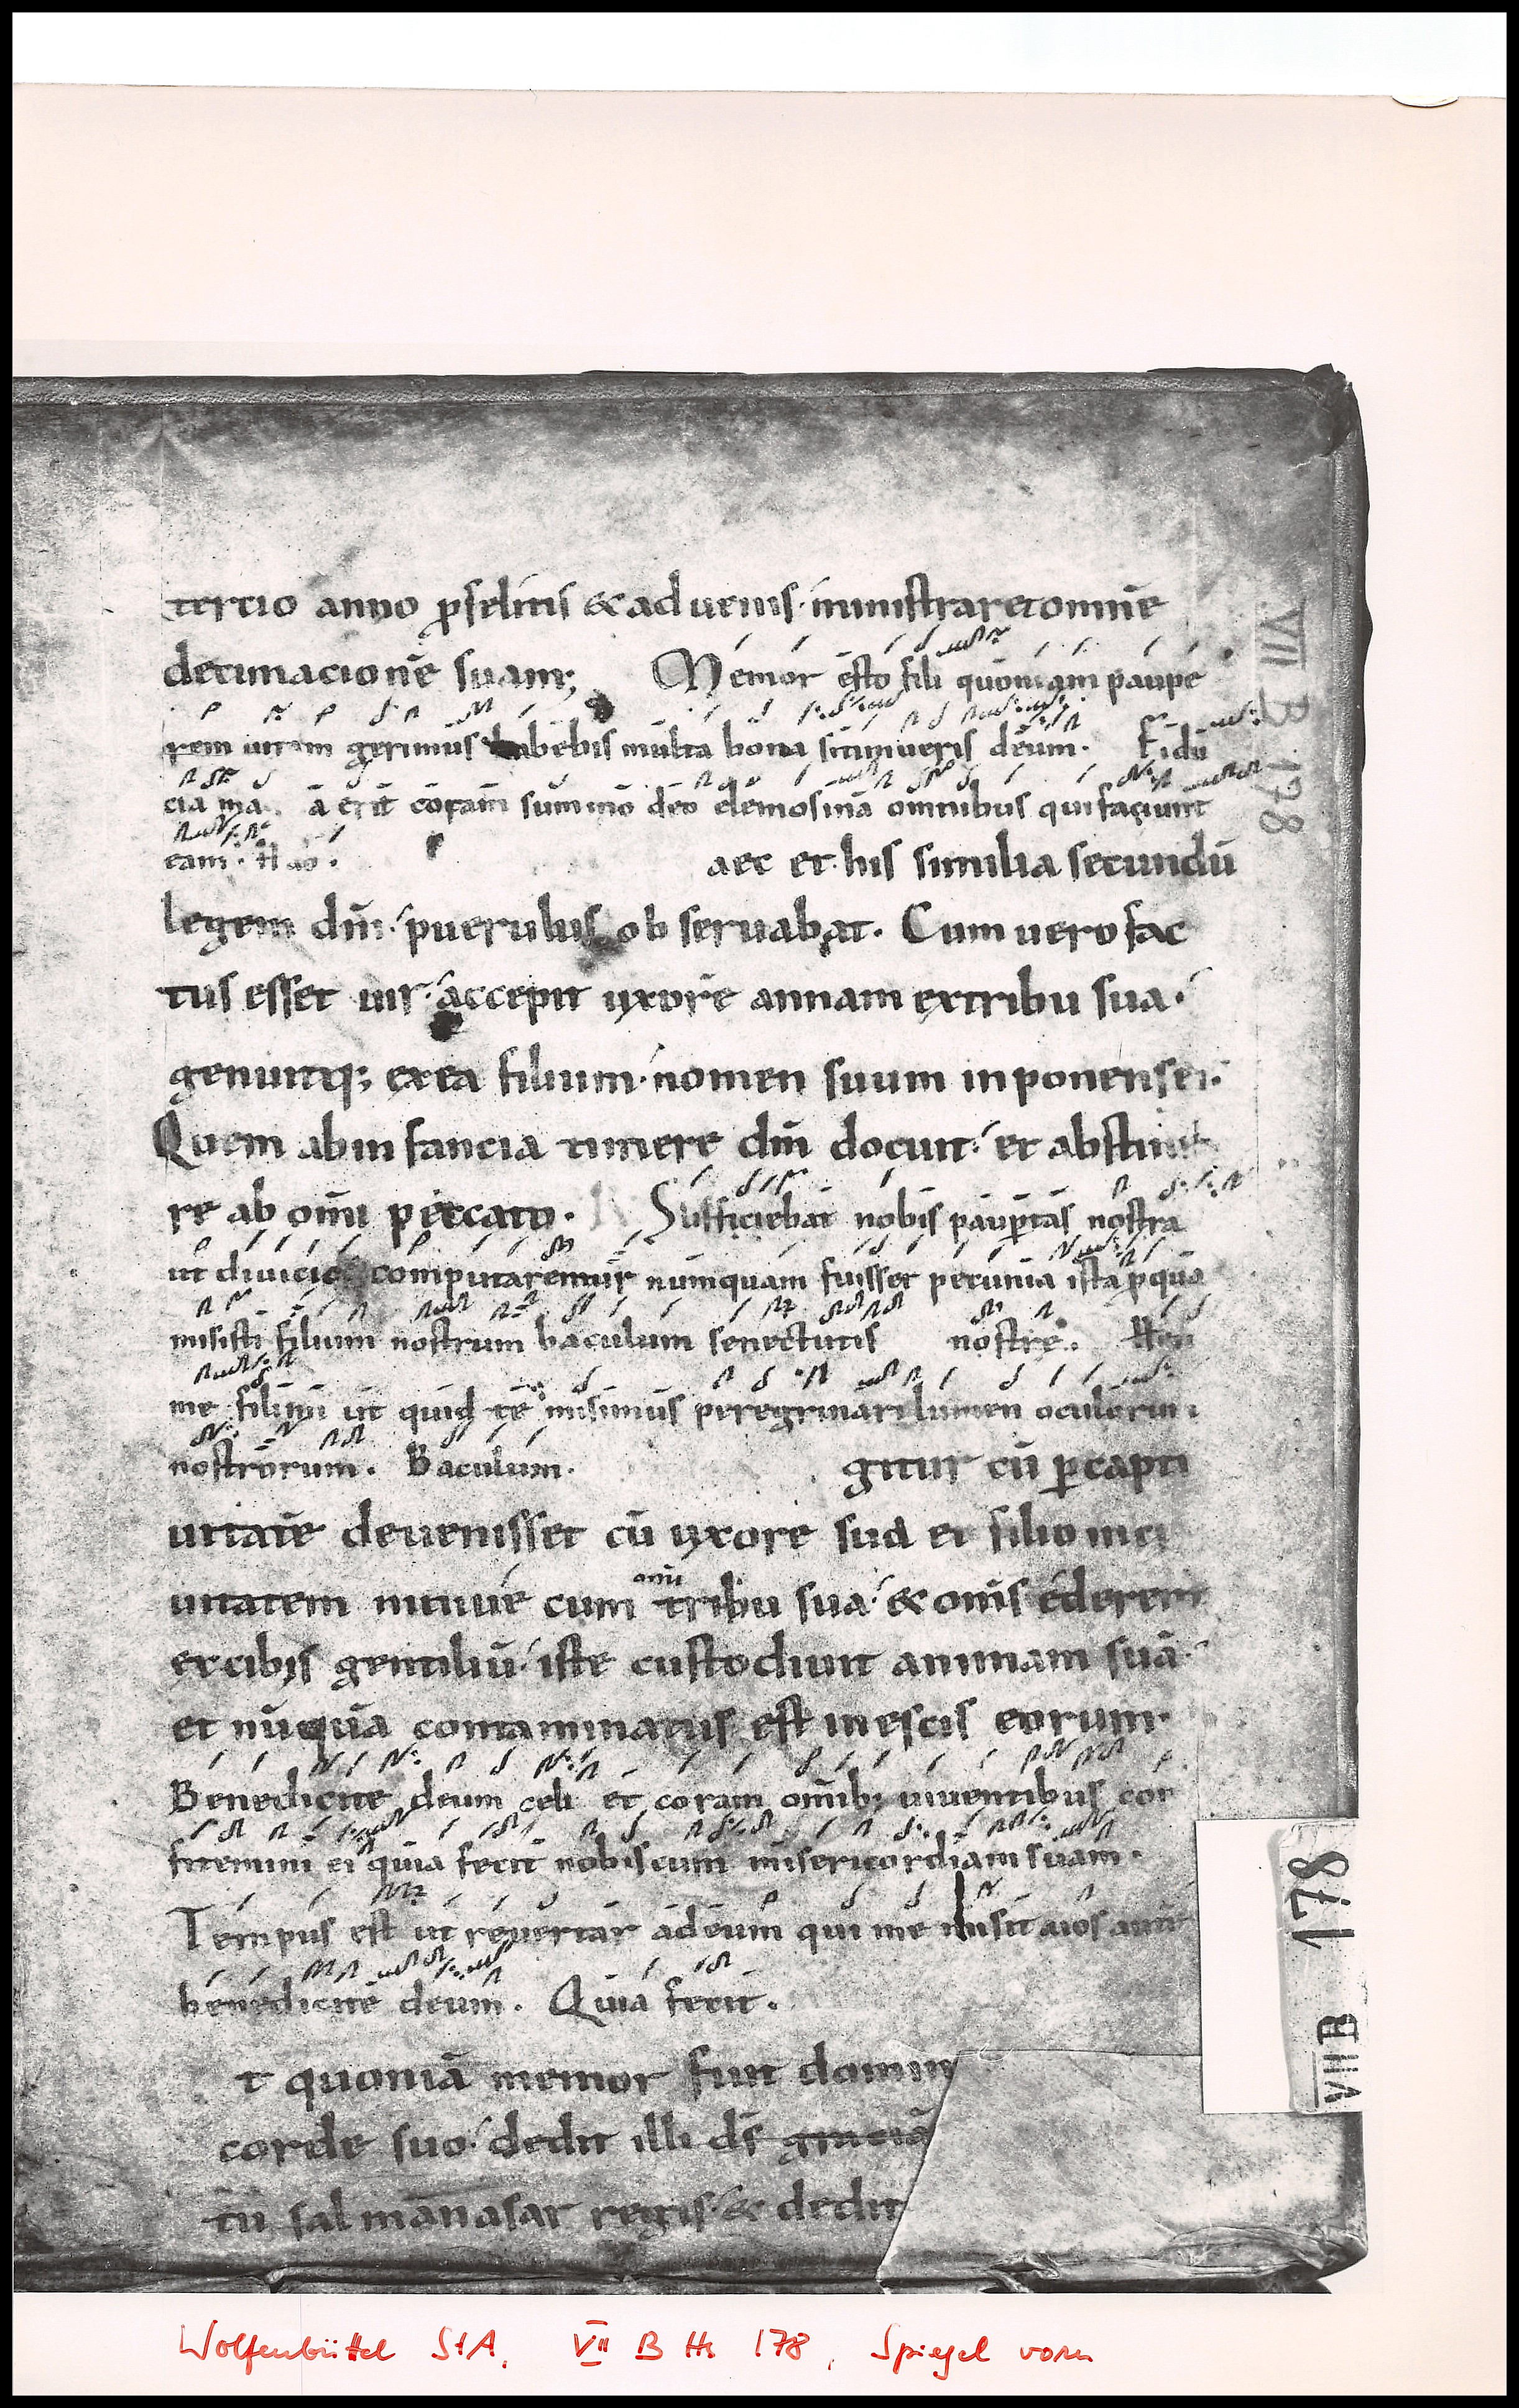 tertio anno p̱selitis & aduenis· ministraret omnē
decimacionē suam; Memor esto fili quoniam paupe
rem uitam gerimus habebis multa bona si timueris deum. Fidu
cia ma a erit coram summo deo elemosina omnibus qui faciunt
eam. Hab.
aec et his similia secundū
legem dn̄i· puerulus obseruabat. Cum uero fac
tus esset uir· accepit uxorē annam ex tribu sua·
genuitq; ex ea filium· nomen suum inponens ei.
Quem ab infancia timere dn̄i docuit· et abstine
re ab om̄i peccato. R Sufficiebat nobis paup̱tas nostra
ut diuicie computaremur numquam fuisset pecunia ista p̱ qua
misisti filium nostrum baculum senectutis nostre. Heu
me fili mi ut quid te misimus peregrinari lumen oculorum
nostrorum. Baculum.
gitur cū p̱ capti
uitatē deuenisset cū uxore sua et filio in ci
uitatem niniue cum om̄i tribu sua· & om̄s ederent
ex cibis gentiliū· iste custodiuit animam suā·
et nūquā contaminatus est in escis eorum.
Benedicite deum celi et coram om̄ib; uiuentibus con
fitemini ei quia fecit nobiscum misericordiam suam.
Tempus est ut reuertar ad eum qui me misit uos autē
benedicite deum. Quia fecit.
t quoniā memor fuit domini
corde suo· dedit illi ds̄ graciā
tu salmanasar regis· & dedit
VII B 178
178
VII B
Wolfenbüttel StA, VII B Hs 178, Spiegel vorn